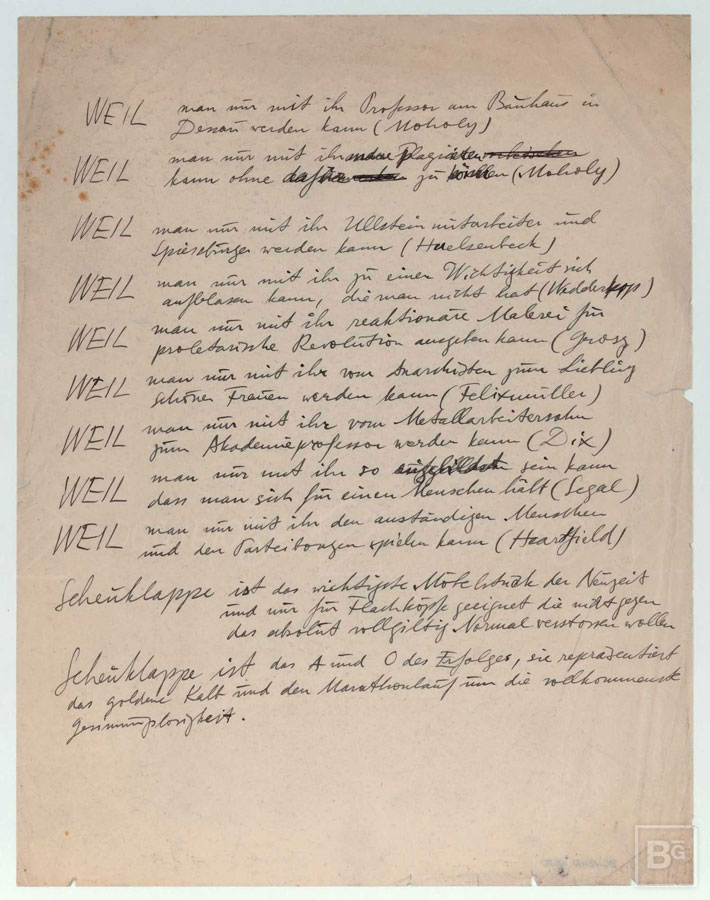 WEIL man nur mit ihr Professor am Bauhaus in
Dessau werden kann (Moholy)
WEIL man nur mit ihr
kann ohne zu (Moholy)
WEIL man nur mit ihr Ullsteinmitarbeiter und
Spiessbürger werden kann (Huelsenbeck)
WEIL man nur mit ihr zu einer Wichtigkeit sich
aufblasen kann, die man nicht hat (Wedderkopp)
WEIL man nur mit ihr reaktionäre Malerei für
proletarische Revolution ausgeben kann (Grosz)
WEIL man nur mit ihr vom Anarchisten zum Liebling
schöner Frauen werden kann (Felixmüller)
WEIL man nur mit ihr vom Metallarbeitersohn
zum Akademieprofessor werden kann (Dix)
WEIL man nur mit ihr so sein kann
dass man sich für einen Menschen hält (Segal)
WEIL man nur mit ihr den anständigen Menschen
und den spielen kann (Heartfield)
Scheuklappe ist das wichtigste Möbelstück der Neuzeit
und nur für Flachköpfe geeignet die nicht gegen
das absolut vollgiltig Normal verstossen wollen
Scheuklappe ist das A und O des Erfolges, sie repräsentiert
das goldene Kalb und den Marathonlauf um die vollkommenste
Gesinnungslosigkeit.
BG